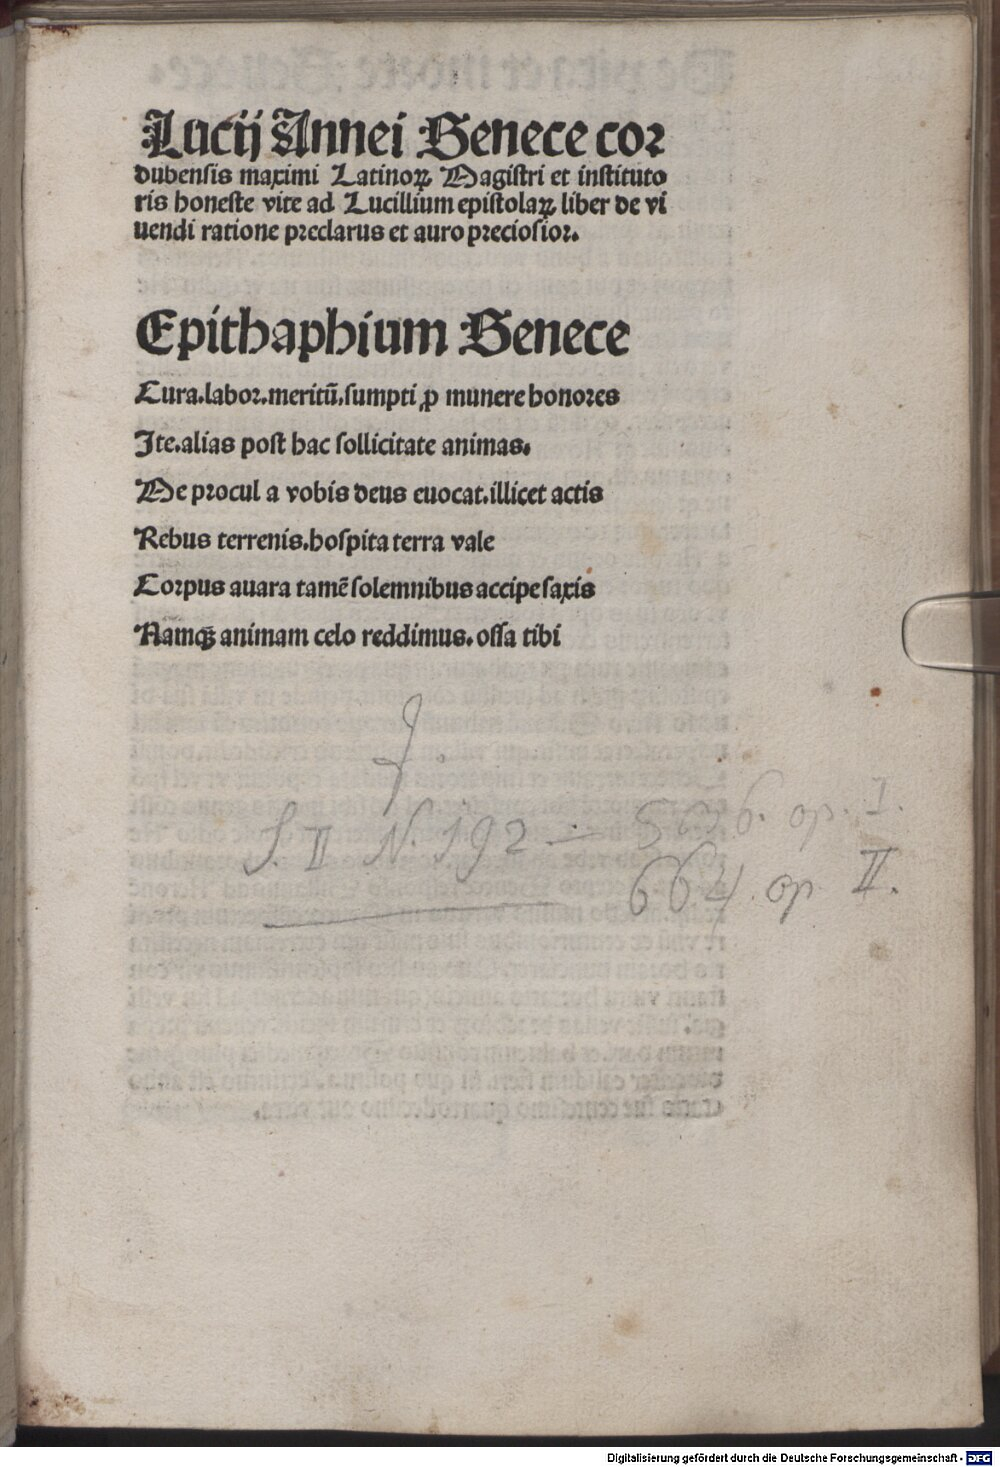 Lucij Annei Senece cor
dubensis maximi Latinoꝝ Magistri et instituto
ris honeste vite ad Lucillium epistolaꝝ liber de vi
uendi ratione preclarus et auro preciosior.
Epithaphium Senece
Cura.labor.meritū.sumpti ꝓ munere honores
Ite.alias post hac sollicitate animas.
Me procul a vobis deus euocat.illicet actis
Rebus terrenis.hospita terra vale
Corpus auara tamē solemnibus accipe saxis
Namqꝫ animam celo reddimus.ossa tibi
S. II N. 192 — op. I.
664. op II.
Digitalisierung gefördert durch die Deutsche Forschungsgemeinschaft - DFG